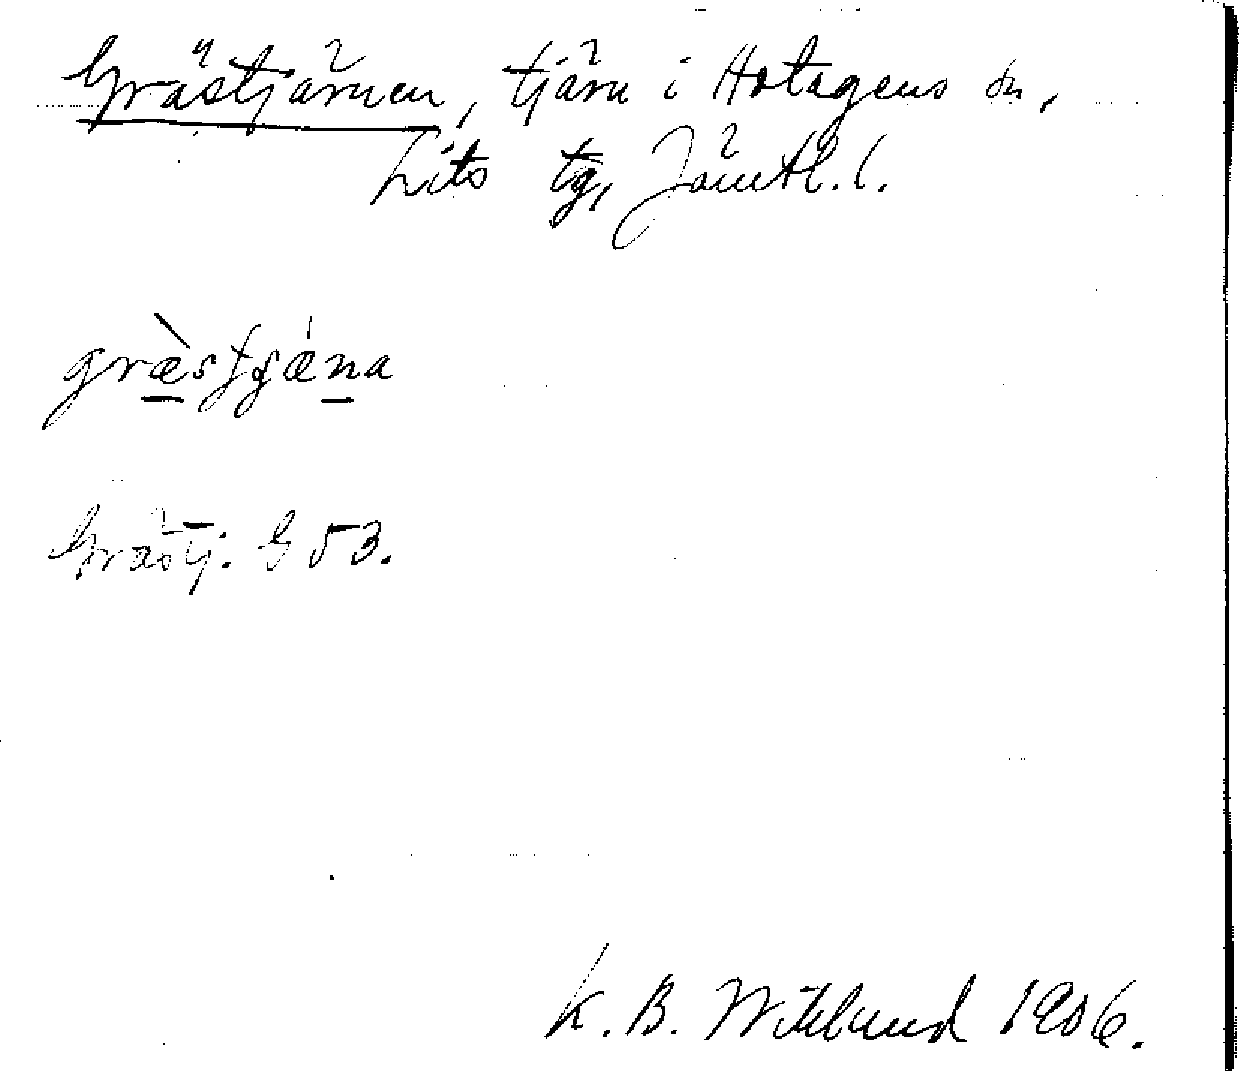 Grästjärnen, tjärn i Hotagens sn,
Lits tg, Jämtl. l.
græ̀stjǽna
Grästj. G 53.
K. B. Wiklund 1906.